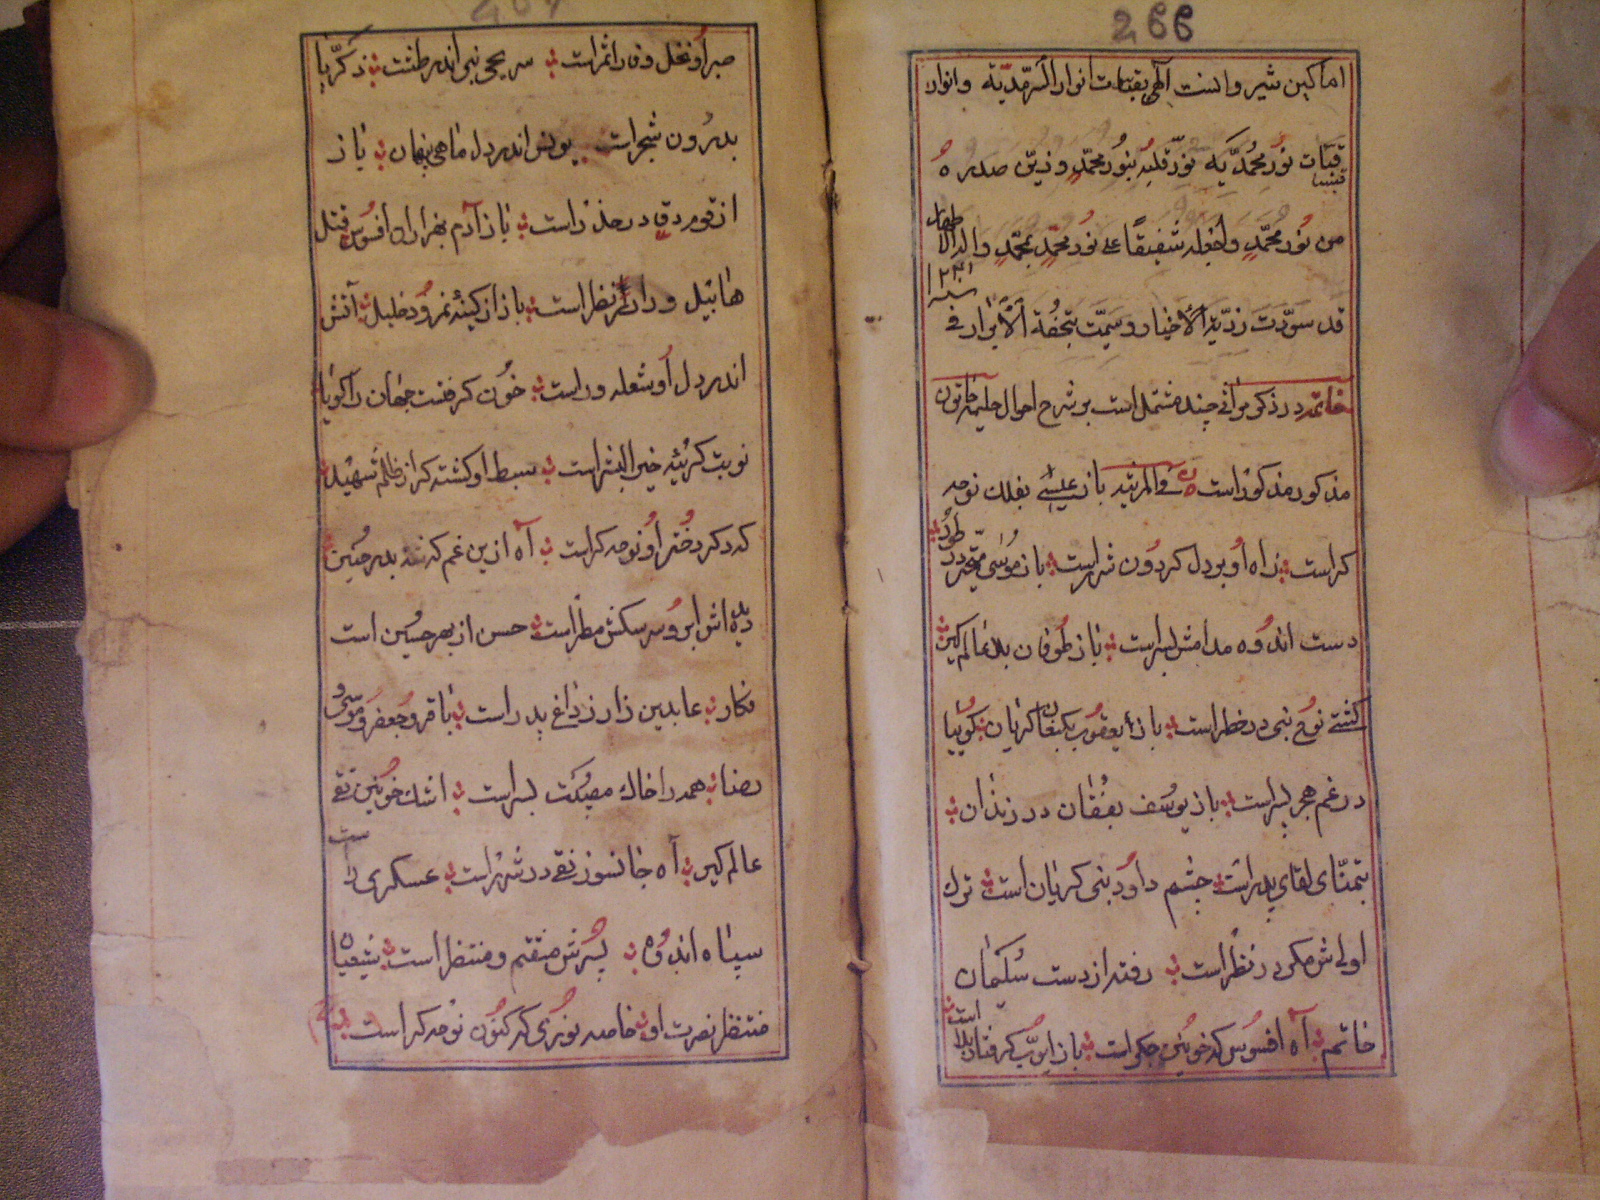 266
اماکین شیر وانست آلهی بقبات انوار السرمدیة وانوار
قبسات نُور محُمّدیَه نوّر قلبه بنُور محمّدٍ وزین صدره
من نُور محُمّدٍ واجعله شفیقًا علی نُور محمّدٍ بمحمّدٍ واله الاطهار
سنه ۱۲۳۱
قد سوّدت زدیة الاَخیار وسمیّت بتحُفة اَلاَبرار فی
خاتمه در ذکر مراثی چند مشتمل است بر شرح احوال حلیمه خاتون
مذکور مذکور است فی المرثیه باز عیسی بفلک نوحه
کراست زاه اُو بر دل کردُون شرراست باز موُسی متحیر در طوُر
دست اندُوه مدامش بسراست باز طُوفان بلا عالم کیر
کشتے نُوح نبی در خطراست باز یعقوُب بکنعان کریان کوُییا
در غم هجر پسراست باز یوسُف بفغُان در زندان
بتمنّای لقای پدراست چشم داود نبی کریان است ترک
اولی ش مکر در نظراست رفته از دست سُلیمان
خاتم آه افسوُس که خوُنین جکراست باز ایوُب کرفتار بلا است
صبر اُو نخل وفا را ثمراست سر یحیی نبی اندر طشت ذکرّیا
بدرُون شجراست یونس اندر دل ماهی پنهان باز
از قوم دقٍ در حذر است باز آدم بهزاران افسوُس قتل
هابیل ورا در نظراست باز از کینهٔ نمروُد خلیل آتش
اندر دل اُو شعله وراست خوُن کرفتست جهان را کویا
نوبت کریهٔ خیر البشراست سبط او کشته کر از ظلم شهید
که دکر دخُتر اُو نوحه کراست آه ازین غم که شه بدر حُنین
دیده اش ابر وُسرسکش مطراست حسن از بهر حسُین است
فکار عابدین زار ز داغ پدر است باقر وُ جعفر وُ موسی و
رضا همه را خاک مصیُبت بسراست اشک خوُنین تقے
عالم کیر آه جانسوز نقے در شرراست عسکری را ست
سپاه اندوُه پسُرش منتقم ومنتظراست شیعیان
منتظر نصرت او خامه نوُری که کنُون نوُحه کراست